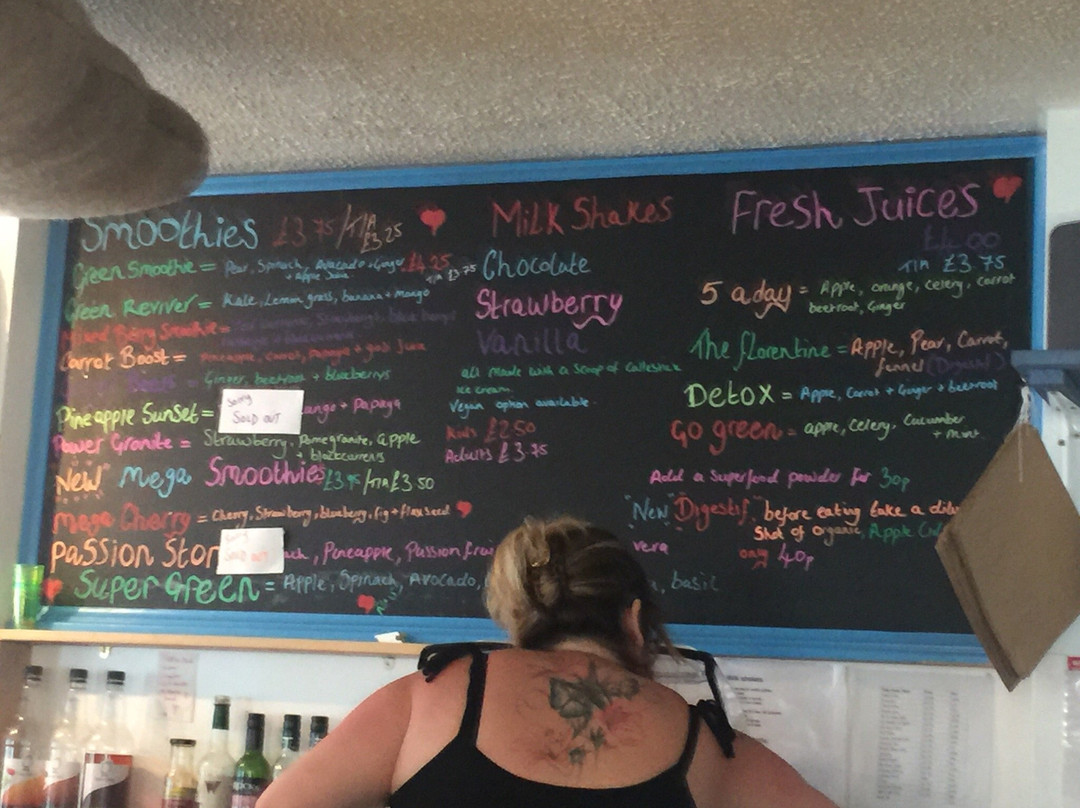 Smoothies £3.75/T/A £3.25
Green Smoothie = Pear, Spinach, Avocado + Ginger £4.25
+ Apple Juice T/A £3.75
Green Reviver = Kale, Lemon grass, banana + Mango
Mixed Berry Smoothie =
Carrot Boost = Pineapple, Carrot, Papaya + goji Juice
= Ginger, beetroot + blueberrys
Pineapple Sunset = Sorry SOLD OUT ango + Papaya
Power Granite = Strawberry, Pomegranite, apple
+ blackcurrents
New Mega Smoothies £3.95/T/A £3.50
Mega Cherry = Cherry, Strawberry, blueberry, fig + flax seed
Passion Stor Sorry SOLD OUT ach, Pineapple, Passion frui vera
Super Green = Apple, Spinach, Avocado, basil
Milk Shakes
Chocolate
Strawberry
Vanilla
all Made with a Scoop of Callestick
ice cream.
Vegan option available.
Kids £2.50
Adults £3.75
Fresh Juices
£4.00
T/A £3.75
5 a day = Apple, orange, Celery, carrot
beetroot, Ginger
The florentine = Apple, Pear, Carrot,
fennel (Digestif)
Detox = Apple, Carrot + Ginger + beetroot
Go green = apple, Celery, Cucumber
+ Mint.
Add a Superfood powder for 30p
"New" Digestif, before eating take a
Shot of organic, Apple
only 40p